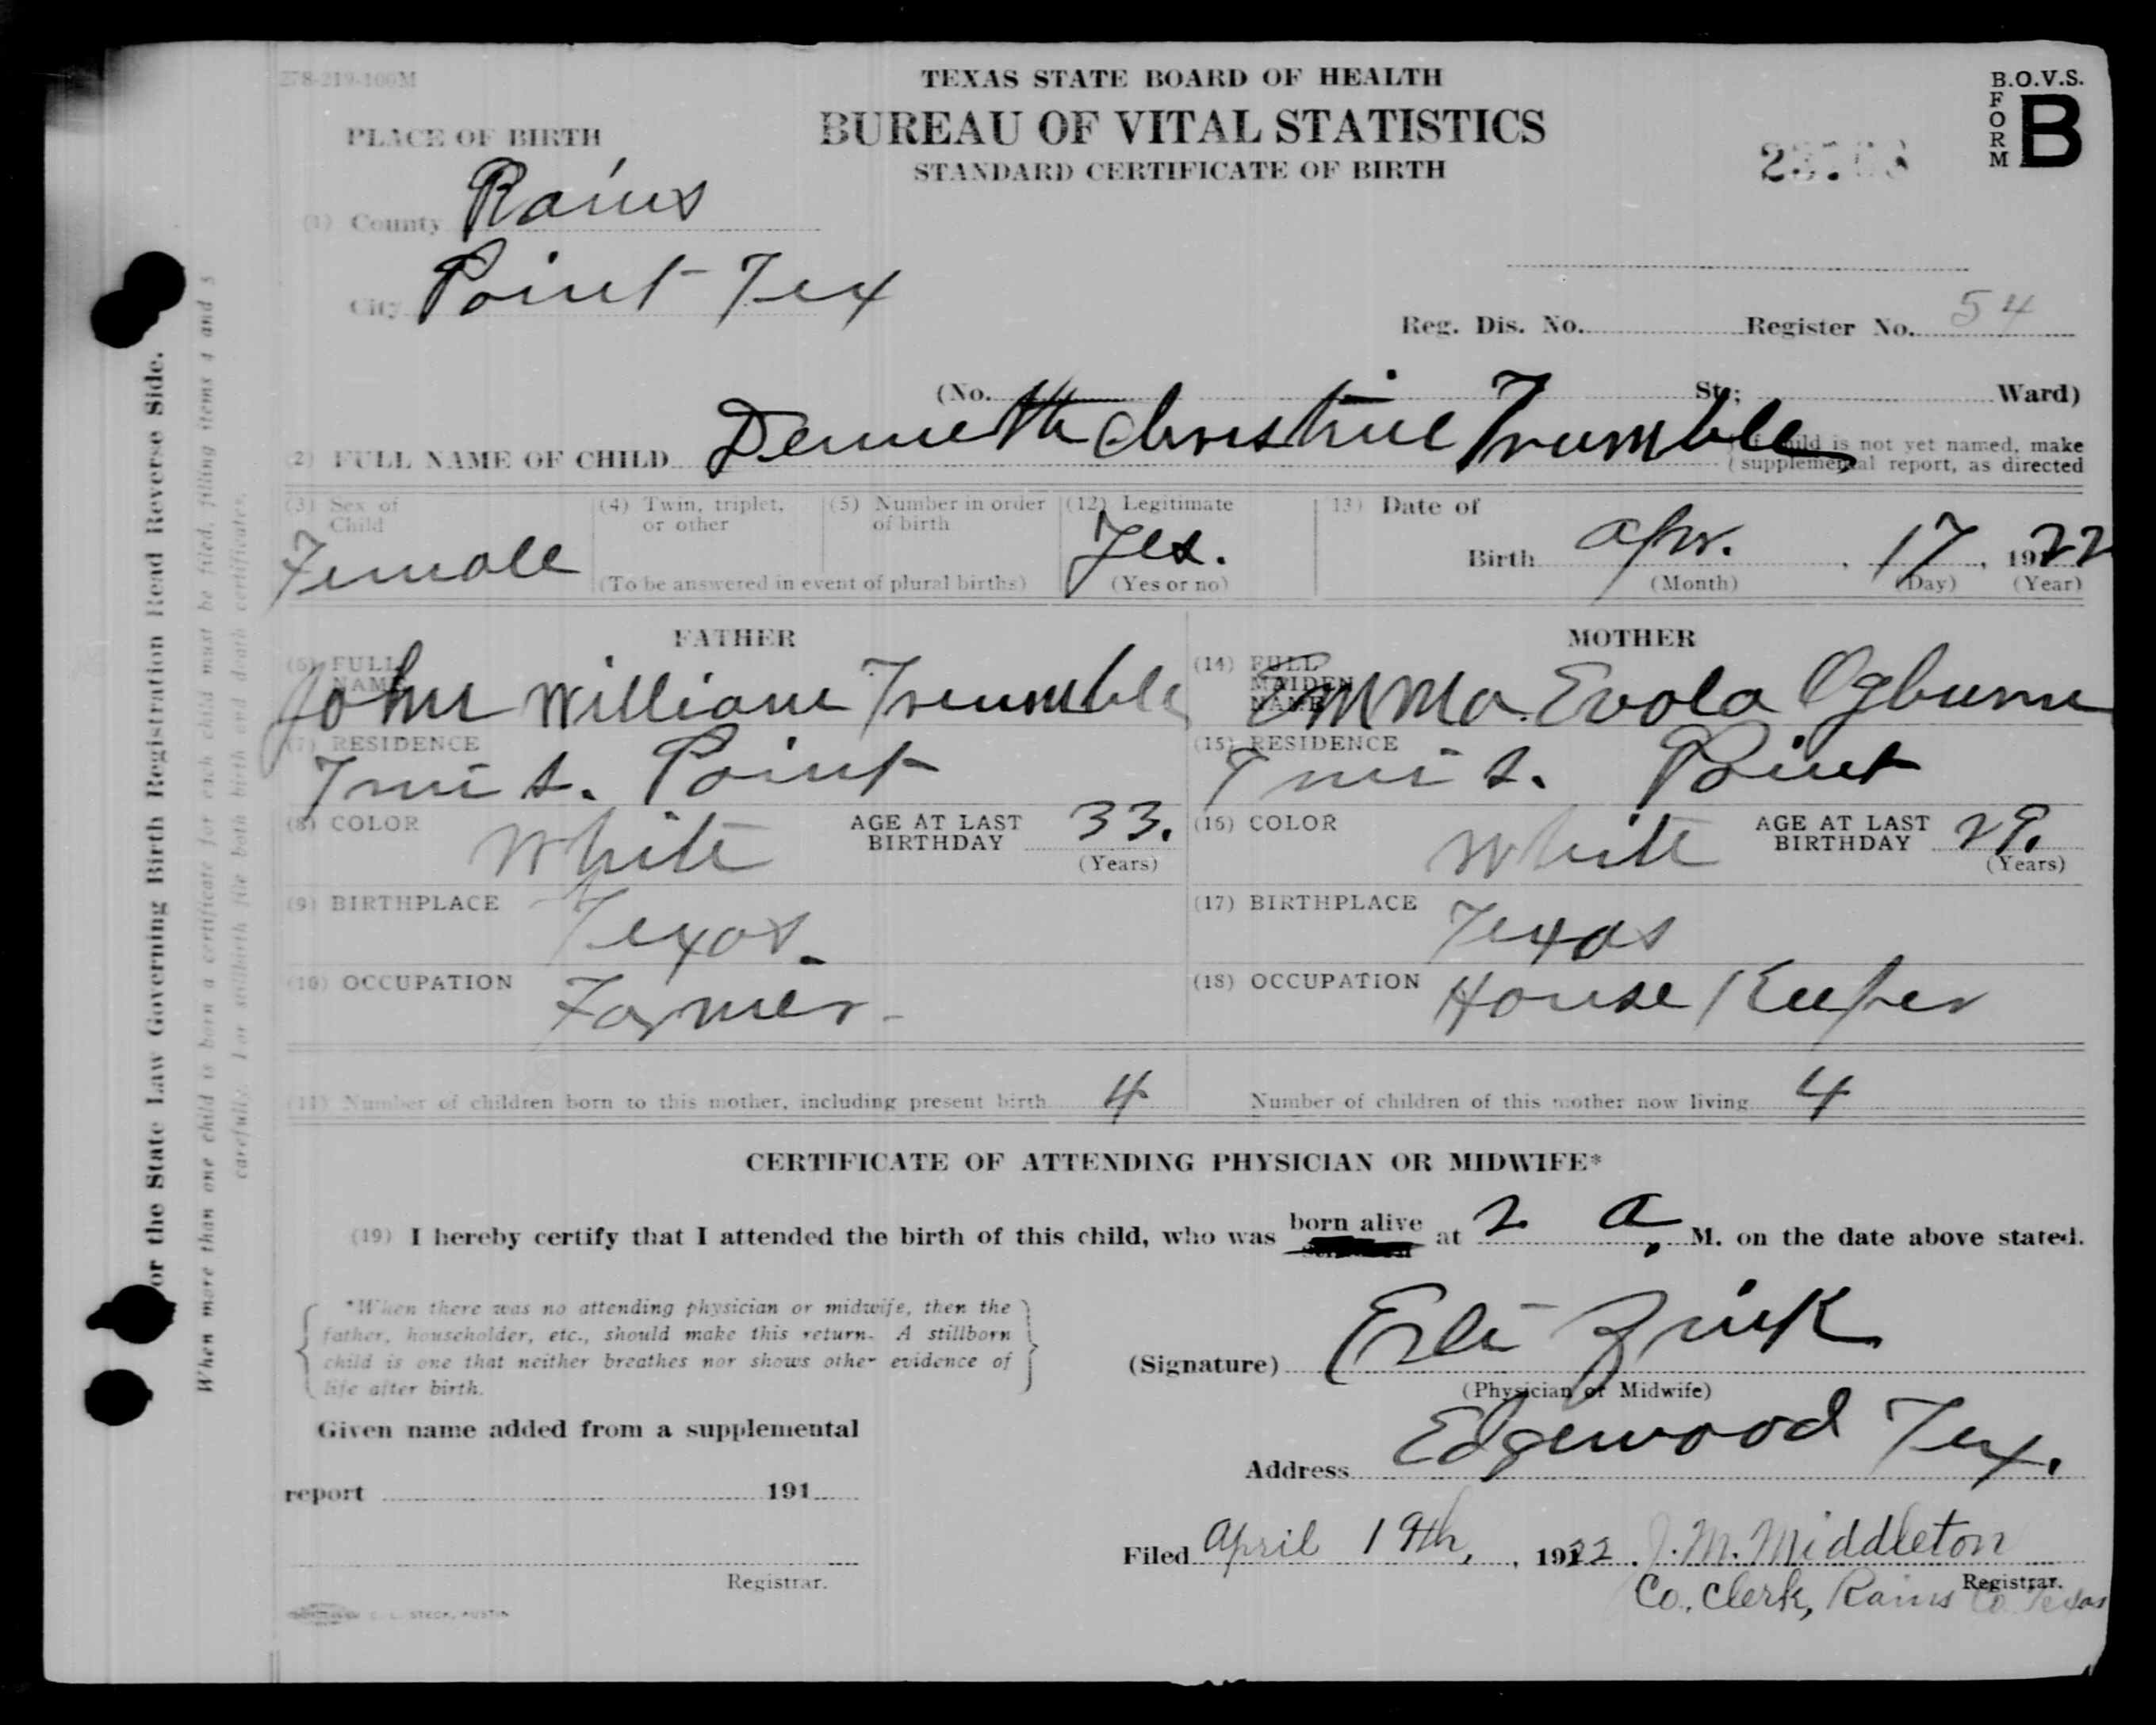 278-219-100M
TEXAS STATE BOARD OF HEALTH
BUREAU OF VITAL STATISTICS
STANDARD CERTIFICATE OF BIRTH
B.O.V.S.
FORM B
PLACE OF BIRTH
(1) County Rains
City Point Tex
Reg. Dis. No. Register No. 54
(No. St.; Ward)
(2) FULL NAME OF CHILD Denneth Christine Trumble
If child is not yet named, make
supplemental report, as directed
(3) Sex of Child Female
(4) Twin, triplet, or other
(5) Number in order of birth
(To be answered in event of plural births)
(12) Legitimate Yes. (Yes or no)
13) Date of Birth Apr. 17, 1922
(Month) (Day) (Year)
FATHER
(6) FULL NAME John William Trumble
(7) RESIDENCE 7 mi S. Point
(8) COLOR White AGE AT LAST BIRTHDAY 33. (Years)
(9) BIRTHPLACE Texas.
(10) OCCUPATION Farmer-
MOTHER
(14) FULL MAIDEN NAME Emma Evola Ogburn
(15) RESIDENCE 7 mi S. Point
(16) COLOR White AGE AT LAST BIRTHDAY 29. (Years)
(17) BIRTHPLACE Texas
(18) OCCUPATION House Keeper
(11) Number of children born to this mother, including present birth 4
Number of children of this mother now living 4
CERTIFICATE OF ATTENDING PHYSICIAN OR MIDWIFE*
(19) I hereby certify that I attended the birth of this child, who was born alive at 2 a. M. on the date above stated.
*When there was no attending physician or midwife, then the
father, householder, etc., should make this return. A stillborn
child is one that neither breathes nor shows other evidence of
life after birth.
(Signature) Zink
(Physician or Midwife)
Address Edgewood Tex.
Given name added from a supplemental
report 191
Registrar.
Filed April 19th, 1922. J. M. Middleton
Registrar.
Co. Clerk, Rains Co Texas
E. L. STECK, AUSTIN
or the State Law Governing Birth Registration Read Reverse Side.
When more than one child is born a certificate for each child must be filed, filling items 4 and 5
carefully. For stillbirth file both birth and death certificates.